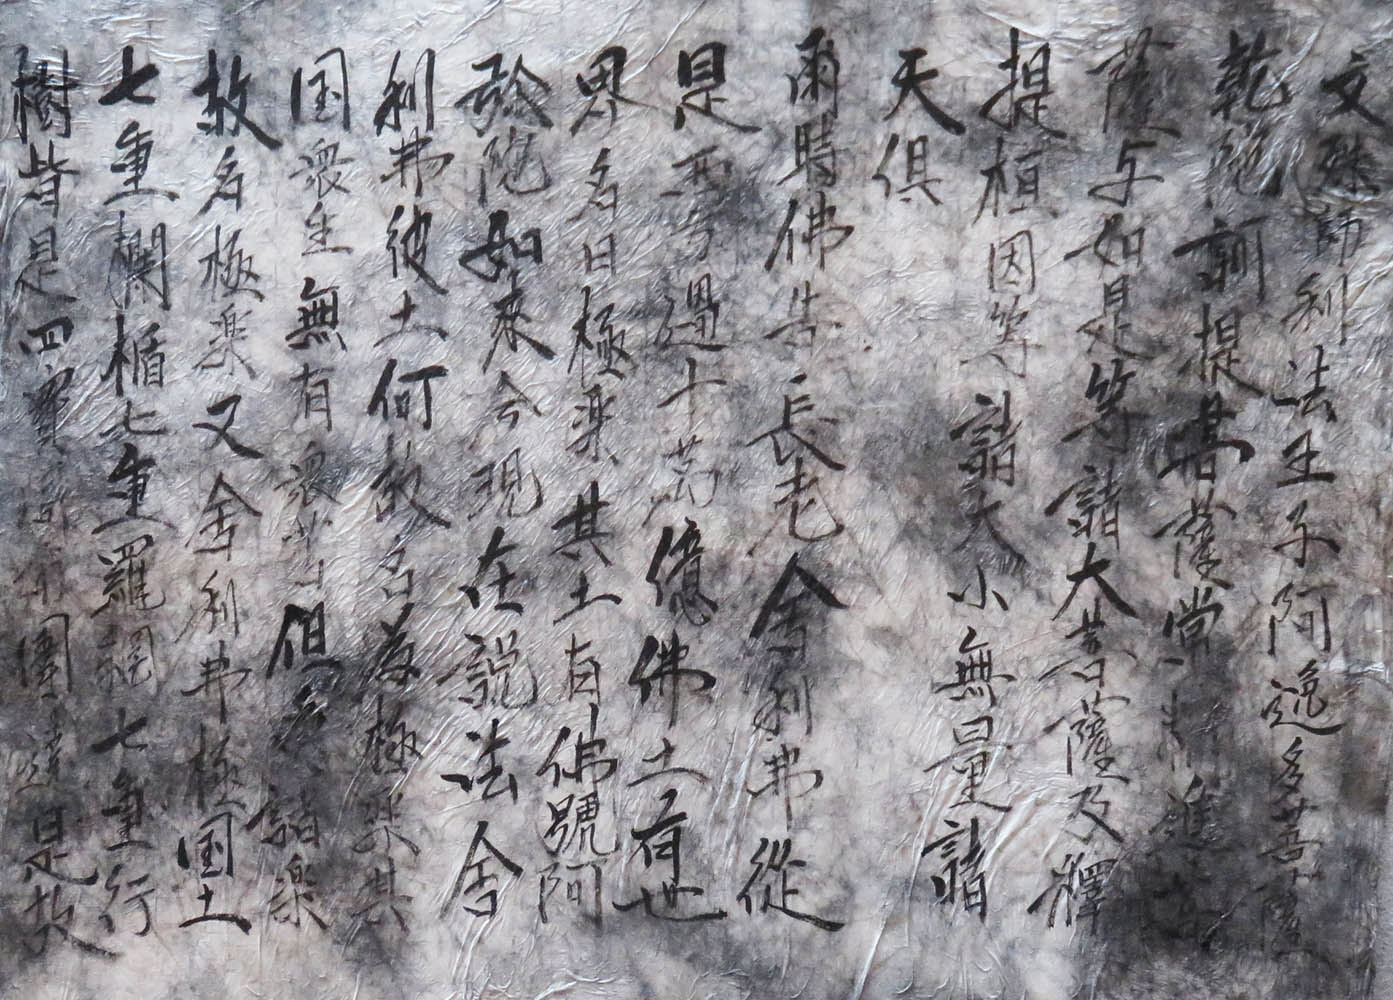 文殊師利法王子阿逸多菩薩
乾陀訶提菩薩常精進菩
薩与如是等諸大菩薩及釋
提桓因等諸大小無量諸
天倶
爾時佛告長老舍利弗從
是西方過十萬億佛土有世
界名曰極楽其土有佛號阿
弥陀如来今現在説法舍
利弗彼土何故名為極楽其
国衆生無有衆苦但受諸楽
故名極楽又舍利弗極国土
七重欄楯七重羅網七重行
樹皆是四寶周帀圍繞是故